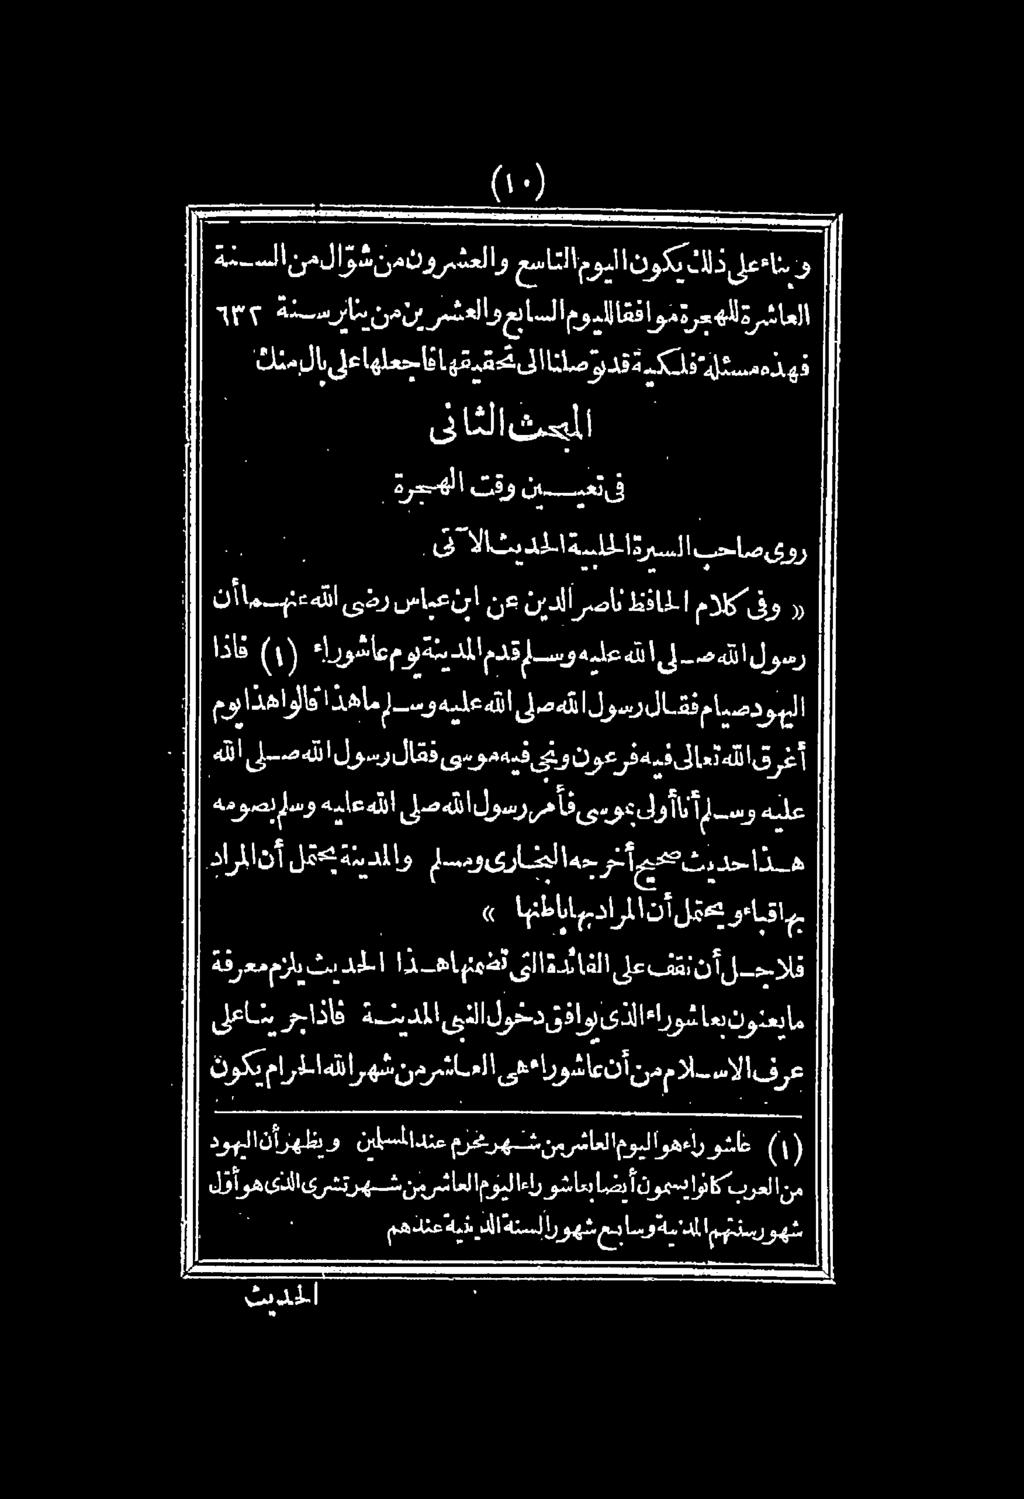 (١٠)
وبناء على ذلك يكون اليوم التاسع والعشرون من شوّال من السنة
العاشرة للهجرة موافقا لليوم السابع والعشرين من يناير سنة ٦٣٢
فهذه مسئلة فلكية قد توصلنا الى تحقيقها فاجعلها على بال منك
المبحث الثانى
فى تعيين وقت الهجرة
روى صاحب السيرة الحلبية الحديث الآتى
«وفى كلام الحافظ ناصر الدين عن ابن عباس رضى الله عنهما أن
رسول الله صلى الله عليه وسلم قدم المدينة يوم عاشوراء (١) فاذا
اليهود صيام فقال رسول الله صلى الله عليه وسلم ما هذا قالوا هذا يوم
أغرق الله تعالى فيه فرعون ونجى فيه موسى فقال رسول الله صلى الله
عليه وسلم أنا أولى بموسى فأمر رسول الله صلى الله عليه وسلم بصومه
هذا حديث صحيح أخرجه البخارى ومسلم والمدينة يحتمل أن المراد
بها قباء ويحتمل أن المراد بها باطنها»
فلاجل أن نقف على الفائدة التى تضمنها هذا الحديث يلزم معرفة
ما يعنون بعاشوراء الذى يوافق دخول النبى المدينة فاذا جرينا على
عرف الاسلام من أن عاشوراء هى العاشر من شهر الله الحرام يكون
(١) عاشوراء هو اليوم العاشر من شهر محرم عند المسلمين ويظهر أن اليهود
من العرب كانوا يسمون أيضا بعاشوراء اليوم العاشر من شهر تشرى الذى هو أوّل
شهور سنتهم المدنية وسابع شهور السنة الدينية عندهم
الحديث